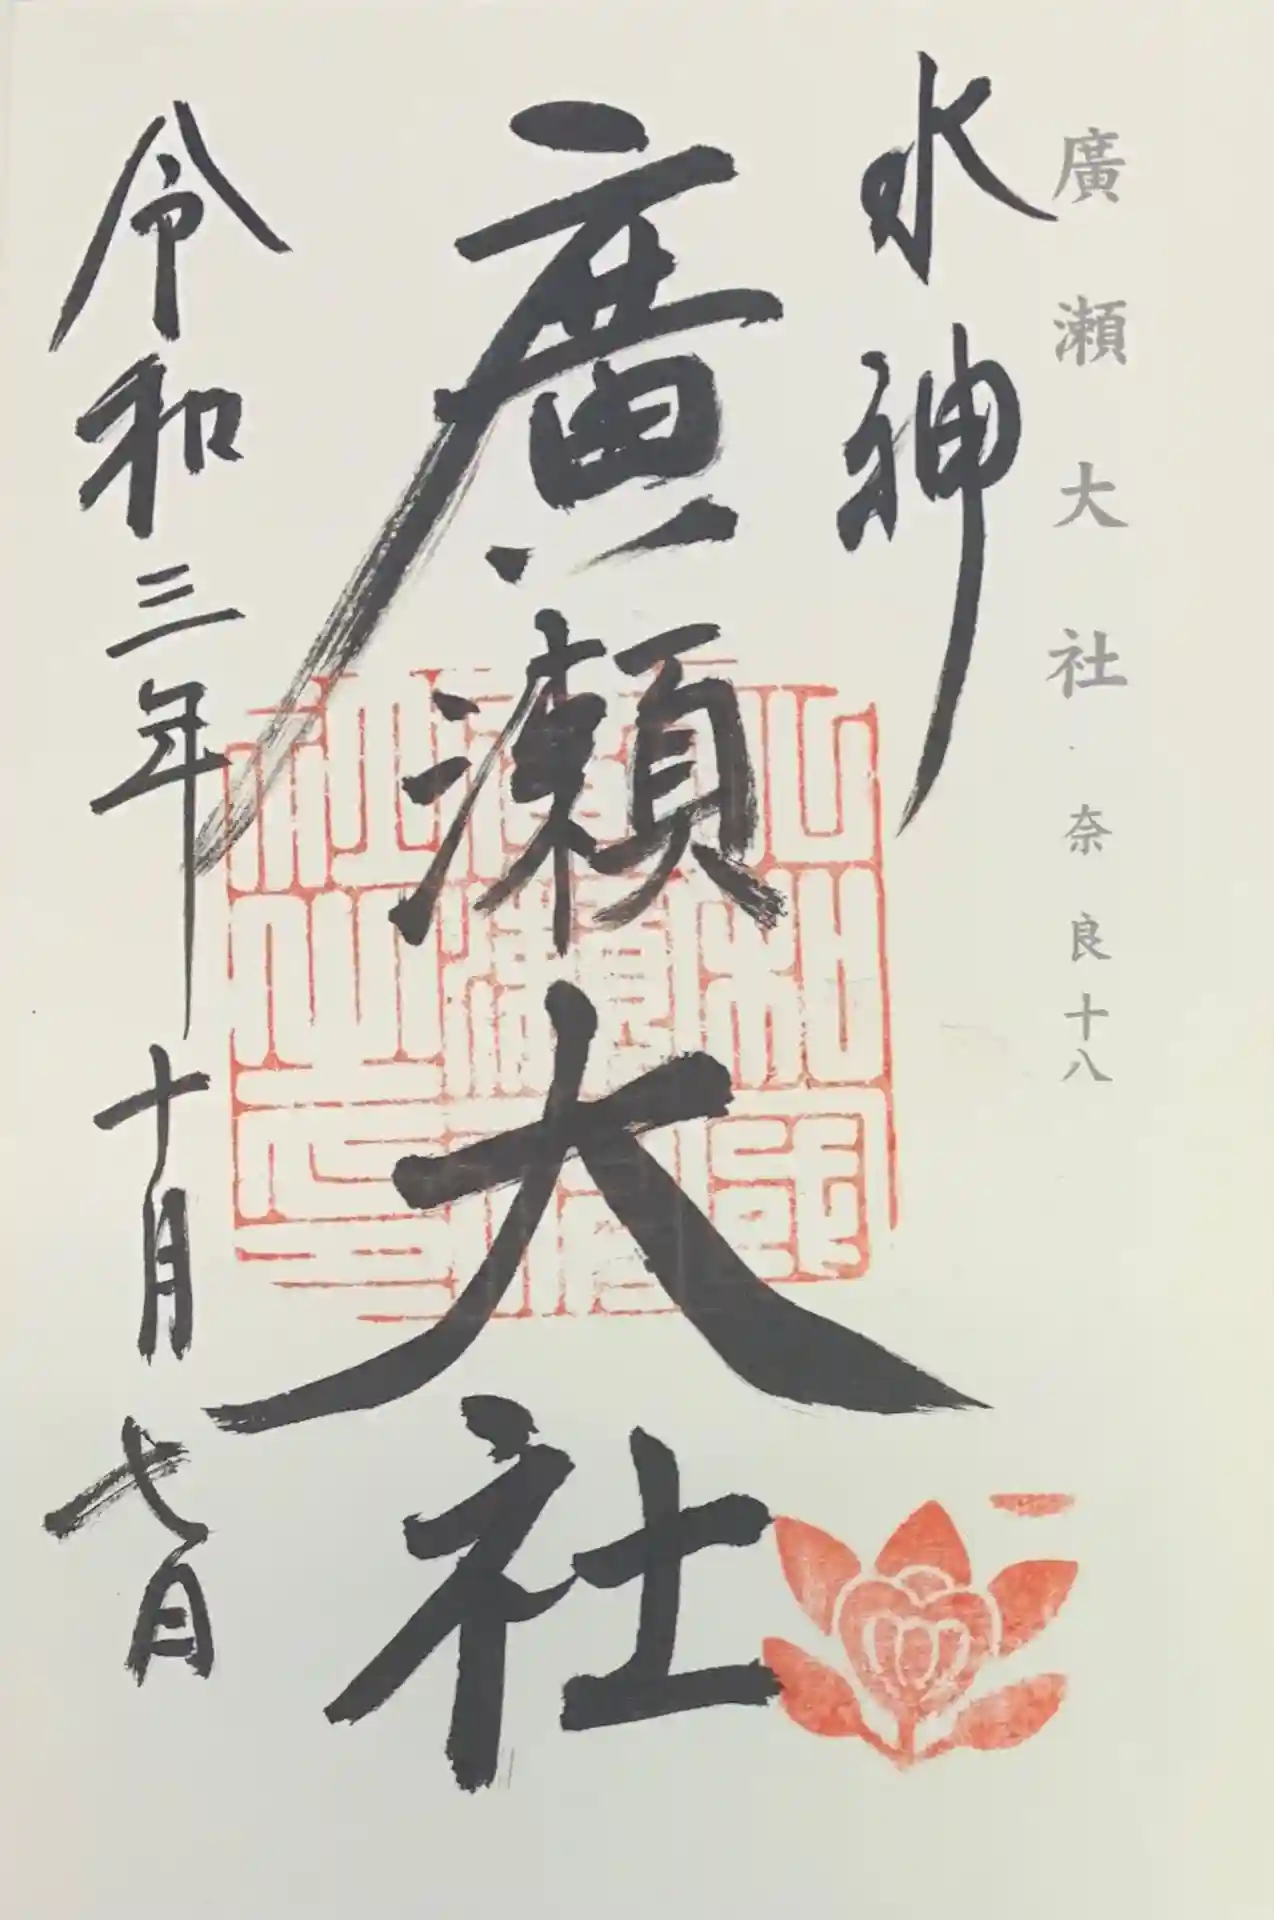 廣瀬大社・奈良十八
水神
廣瀬大社
令和三年十月七日